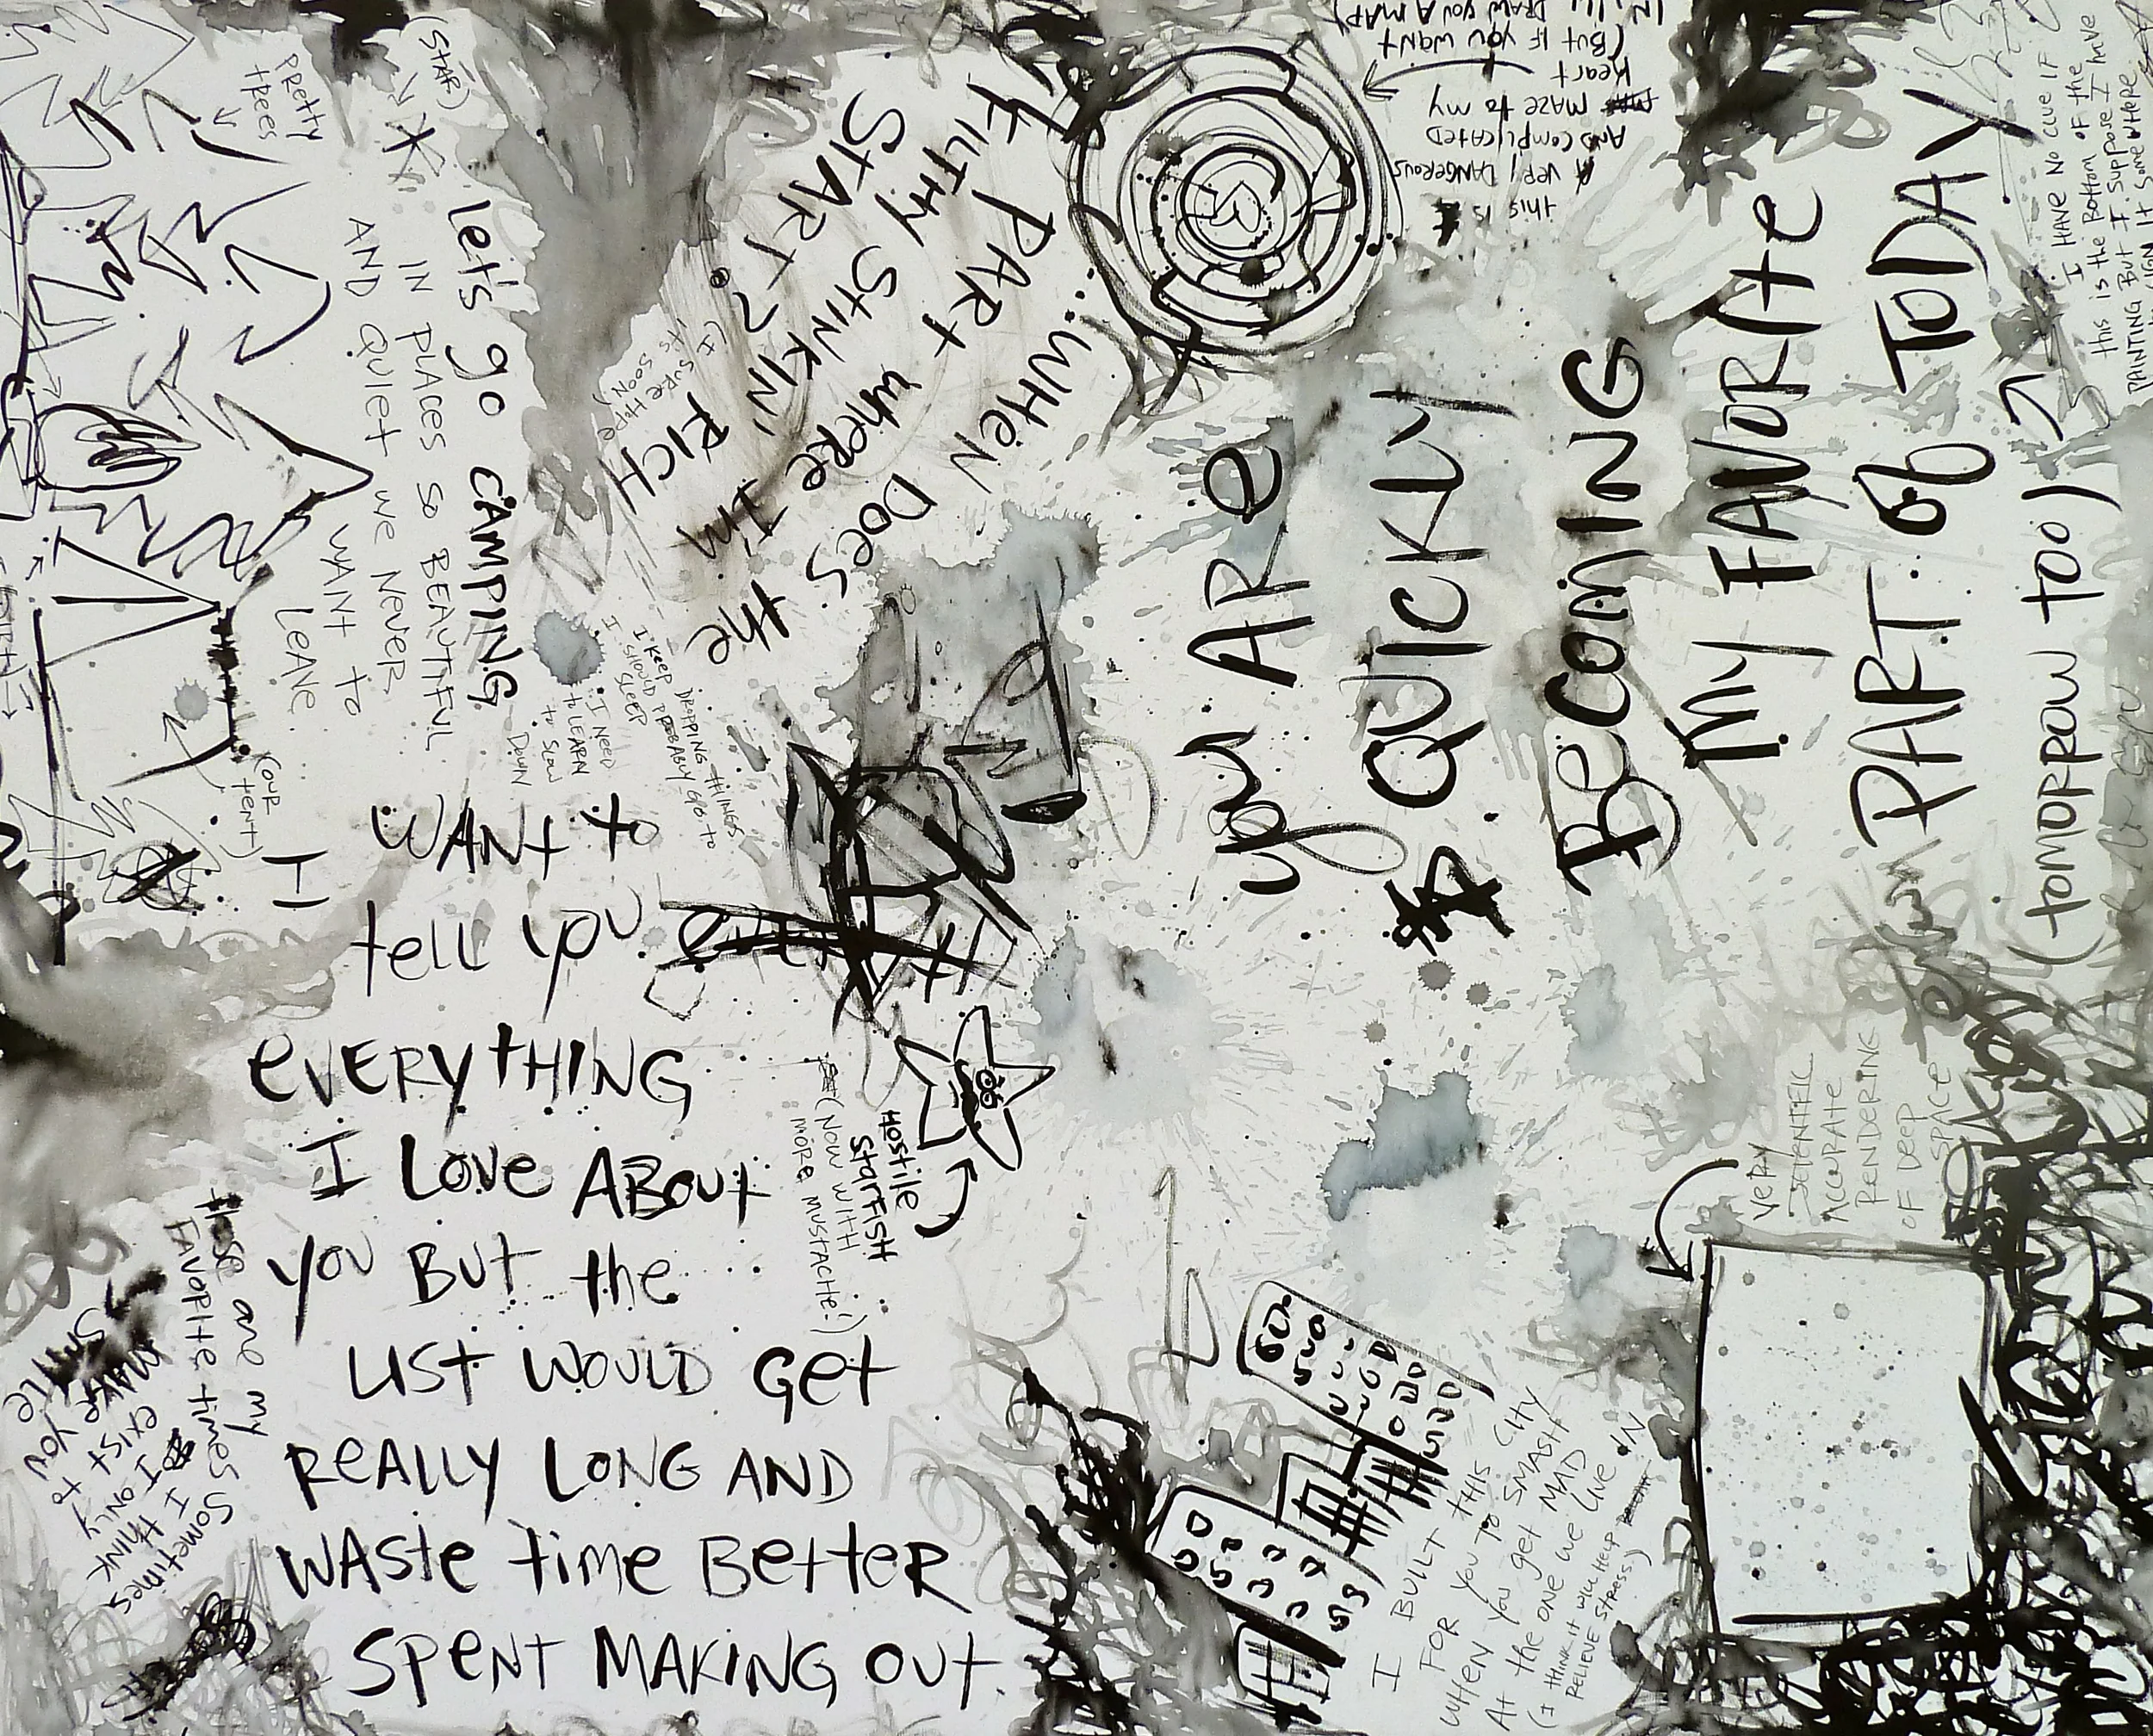 I
WANT to
tell you
EVERYTHING
I LOVE ABOUT
YOU BUT the
LIST WOULD GET
REALLY LONG AND
WASTE TIME BETTER
SPENT MAKING OUT.
you ARE
QUICKLY
BECOMING
MY FAVORITE
PART OF TODAY
(tomorrow too)
WHEN DOES
PART where I'm the
FILTHY STINKIN' RICH
START?
(I SURE HOPE
it's SOON)
Let's go CAMPING
IN PLACES SO BEAUTIFUL
AND QUIET we Never
WANT to
LEAVE
(STAR)
PRETTY
trees
(our
tent)
I keep DROPPING THINGS
I SHOULD PROBABLY go to
SLEEP
I NEED
to LEARN
to SLOW
DOWN
HOSTILE
STARFISH
(NOW WITH
MORE MUSTACHE!)
this is
A very DANGEROUS
AND COMPLICATED
MAZE to my
heart
(BUT IF YOU WANT
I'LL
DRAW YOU A MAP)
I HAVE NO CLUE IF
this is the Bottom of the
PAINTING BUT I SUPPOSE I have
SIGN It SOMEWHERE
VERY
SCIENTIFIC
ACCURATE
RENDERING
OF DEEP
SPACE
I BUILT THIS CITY
FOR YOU TO SMASH
WHEN YOU get MAD
At the ONE we LIVE IN
(I THINK it WILL HELP
RELIEVE STRESS)
these are my
FAVORITE times
Sometimes
I think
I ONLY
exist to
MAKE you
SMILE